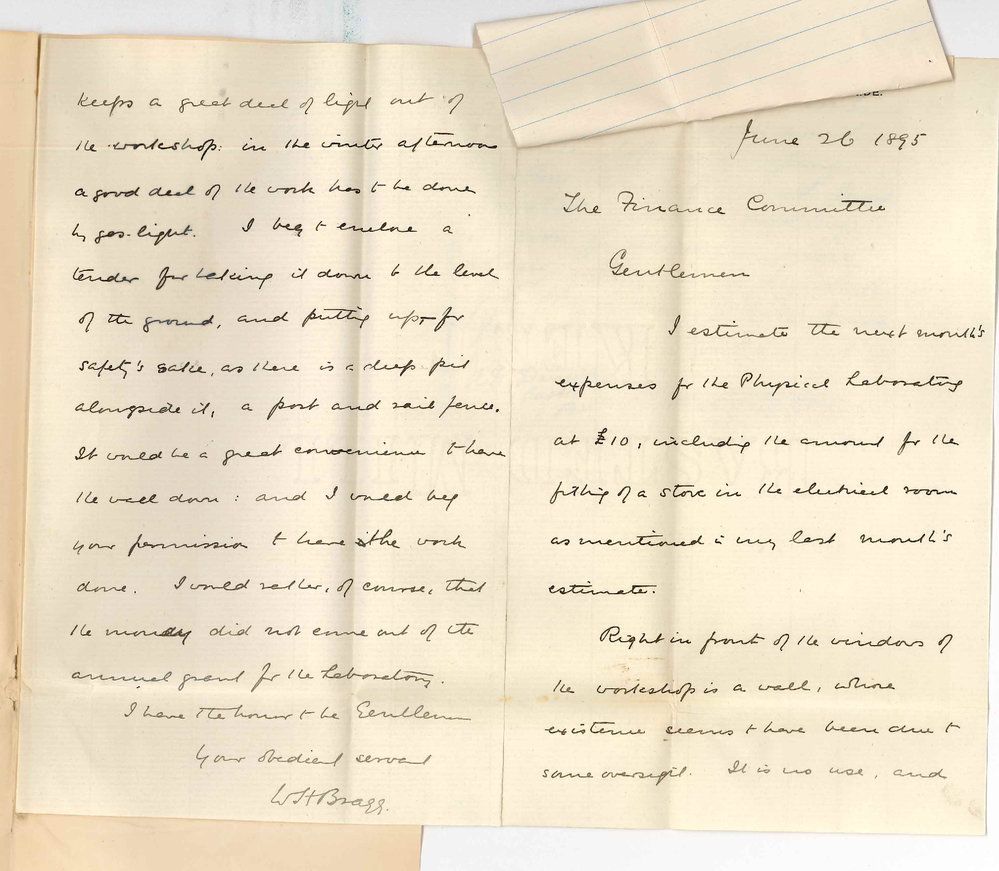 June 26 1895
The Finance Committee
Gentlemen
I estimate the next month's
expenses for the Physical Laboratory
at £10, including the amount for the
fitting of a stove in the electrical room
as mentioned in my last month's
estimate.
Right in front of the windows of
the workshop is a wall, whose
existence seems to have been due to
some oversight. It is no use, and
keeps a great deal of light out of
the workshop: in the winter afternoons
a good deal of the work has to be done
by gas-light. I beg to enclose a
tender for taking it down to the level
of the ground, and putting up, for
safety's sake, as there is a deep pit
alongside it, a post and rail fence.
It would be a great convenience to have
the wall down: and I would beg
your permission to have the work
done. I would rather, of course, that
the money did not come out of the
annual grant for the Laboratory.
I have the honor to be Gentlemen
Your obedient servant
WHBragg.